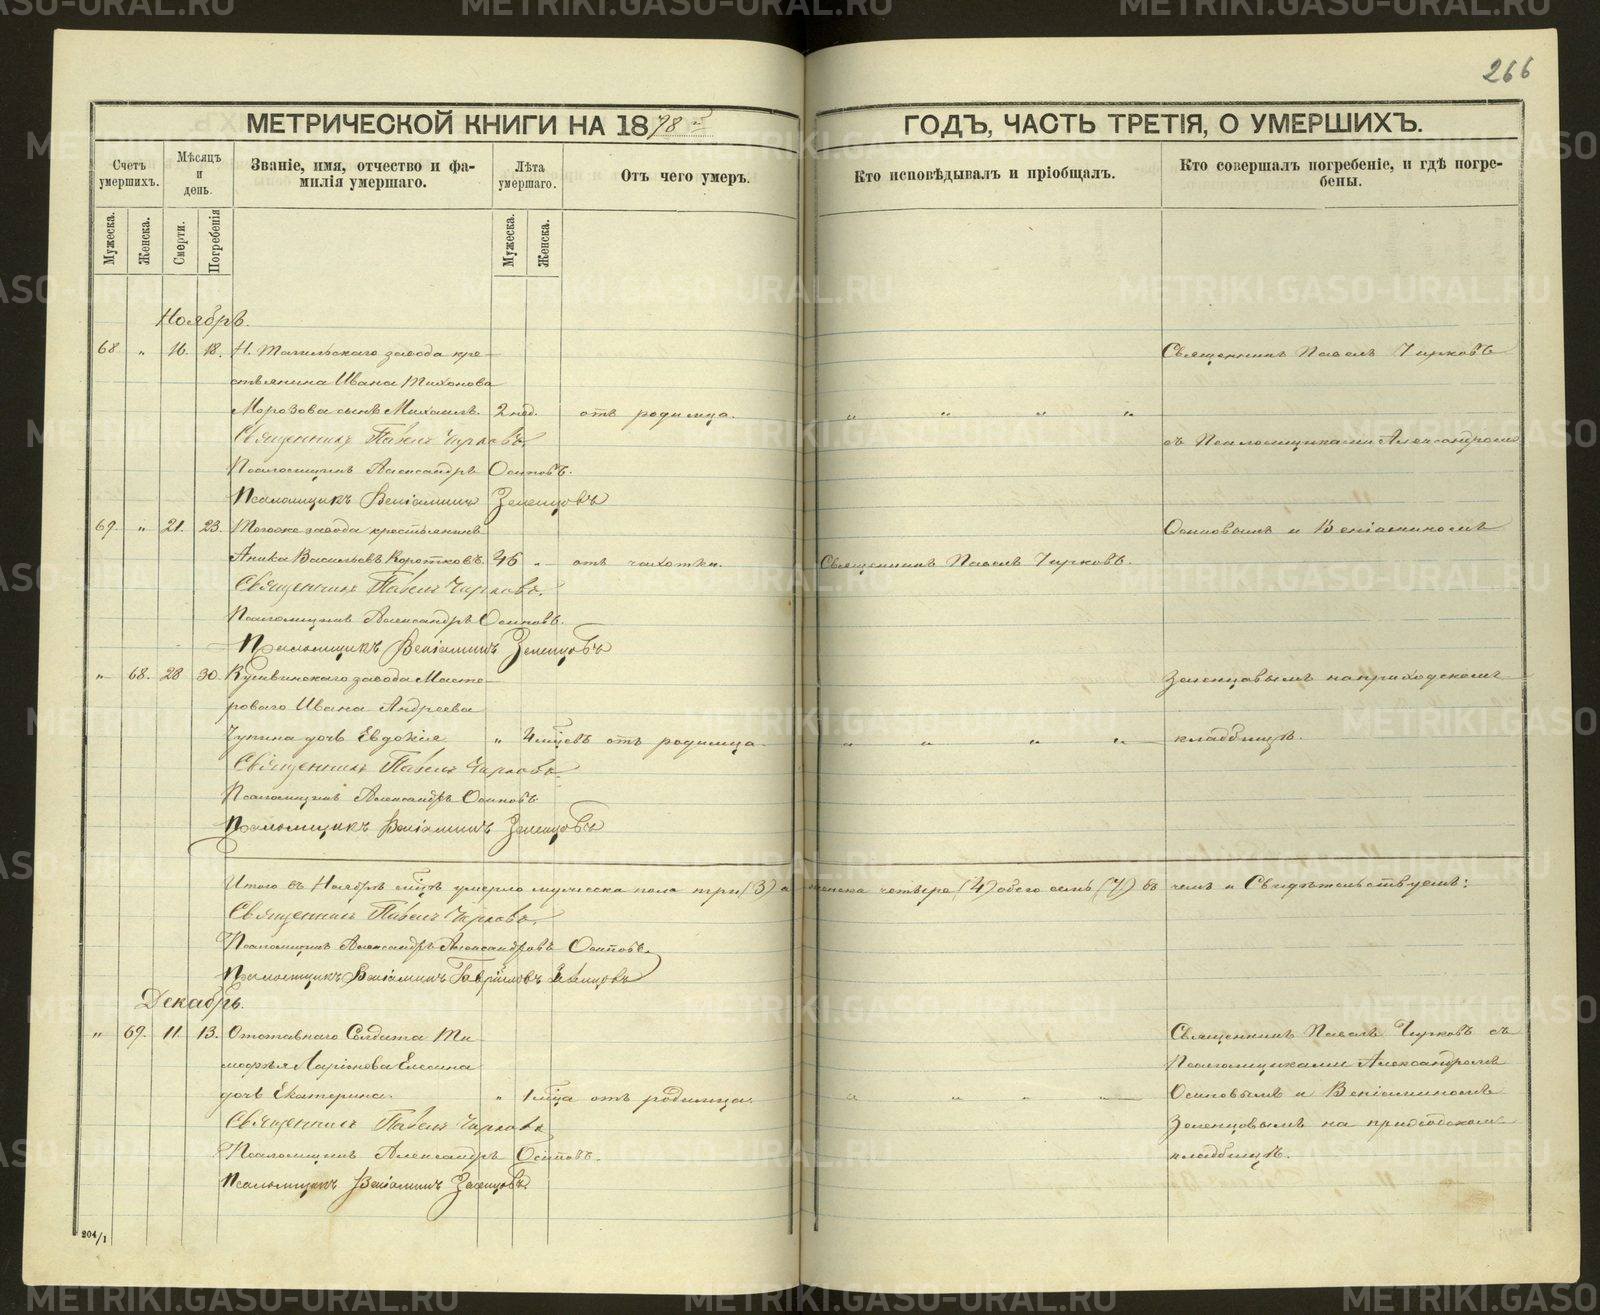 266
МЕТРИЧЕСКОЙ КНИГИ НА 1878 й ГОДЪ, ЧАСТЬ ТРЕТІЯ, О УМЕРШИХЪ.
Счетъ умершихъ.
Мѣсяцъ и день.
Званіе, имя, отчество и фа-
милія умершаго.
Лѣта умершаго.
Отъ чего умеръ.
Кто исповѣдывалъ и пріобщалъ.
Кто совершалъ погребеніе, и гдѣ погре-
бены.
Мужеска.
Женска.
Смерти.
Погребенія
Мужеска.
Женска.
Ноябрь.
68 " 16. 18. Н. Тагильскаго завода кре- Священникъ Павелъ Чирковъ
стьянина Ивана Тихонова
Морозова сынъ Михаилъ. 2 нед. отъ родимца. " " " "
Священникъ Павелъ Чирковъ съ Псаломщиками Александромъ
Псаломщикъ Александръ Осиповъ.
Псаломщикъ Веніаминъ Зеленцовъ
69. " 21. 23. Тогоже завода крестьянинъ Осиповымъ и Веніаминомъ
Аника Васильевъ Коротковъ. 46 " отъ чахотки. Священникъ Павелъ Чирковъ.
Священникъ Павелъ Чирковъ.
Псаломщикъ Александръ Осиповъ.
Псаломщикъ Веніаминъ Зеленцовъ
" 68. 28 30. Кушвинскаго завода Масте- Зеленцовымъ на приходскомъ
роваго Ивана Андреева
Чупина дочь Евдокія " 4 мѣсцевъ отъ родимца. " " " " кладбищѣ.
Священникъ Павелъ Чирковъ
Псаломщикъ Александръ Осиповъ
Псаломщикъ Веніаминъ Зеленцовъ
Итого въ Ноябрѣ мѣсцѣ умерло мужеска пола три (3) а женска четыре (4) обоего семь (7) въ чемъ и Свидѣтельствуемъ:
Священникъ Павелъ Чирковъ.
Псаломщикъ Александръ Александровъ Осиповъ.
Псаломщикъ Веніаминъ Гавриловъ Зеленцовъ
Декабрь.
" 69. 11. 13. Отставнаго Солдата Ти- Священникъ Павелъ Чирковъ съ
мофѣя Ларіонова Елесина Псаломщиками Александромъ
дочь Екатерина. " 1 мѣсца отъ родимца. " " " " Осиповымъ и Веніаминомъ
Священникъ Павелъ Чирковъ Зеленцовымъ на приходскомъ
Псаломщикъ Александръ Осиповъ. кладбищѣ.
Псаломщикъ Веніаминъ Зеленцовъ.
204/1
METRIKI.GASO-URAL.RU